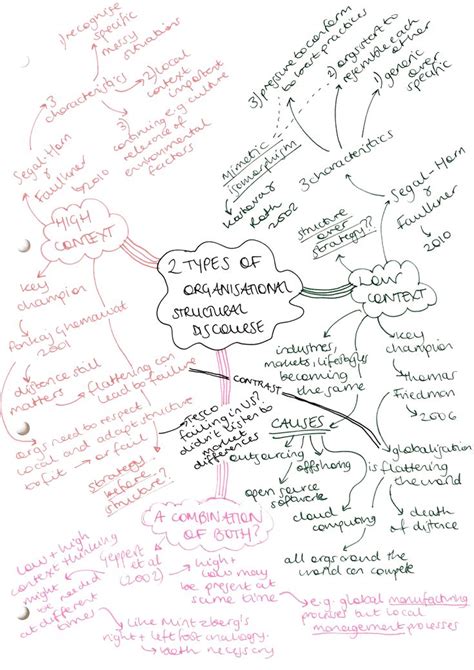 2 TYPES OF
ORGANISATIONAL
STRUCTURAL
DISCOURSE
HIGH
CONTEXT
Segal-Horn
&
Faulkner
2010
3
characteristics
1) recognise
specific
messy
situations
2) local
context
important
3)
continuing e.g culture
relevance of
environmental
factors
key
champion
Pankaj Ghemawat
2001
distance still
matters
flattering can
lead to failure
orgs need to respect
local and adapt structure
to fit or fail
Strategy
before
structure?
Tesco
failing in US?
didn't listen to
market
differences
CONTRAST
LOW
CONTEXT
Segal-Horn
&
Faulkner
2010
3 characteristics
1) generic
over
specific
2) orgs start to
resemble each
other
3) pressure to conform
to best practices
Mimetic
isomorphism
Roth
2002
structure
over
strategy??
key
champion
Thomas
Friedman
2006
globalisation
is flattering
the world
death
of distance
industries,
markets, lifestyles
becoming
the same
CAUSES
outsourcing
offshoring
open source
software
cloud
computing
all orgs around the
world can compete
A COMBINATION
OF BOTH?
Geppert
et al
(2002)
high +
low may
be present at
same time
e.g. global manufacturing
processes but local
management processes
low + high
context thinking
might
be needed
at different
times
like Mintzberg's
right + left foot analogy.
both necessary